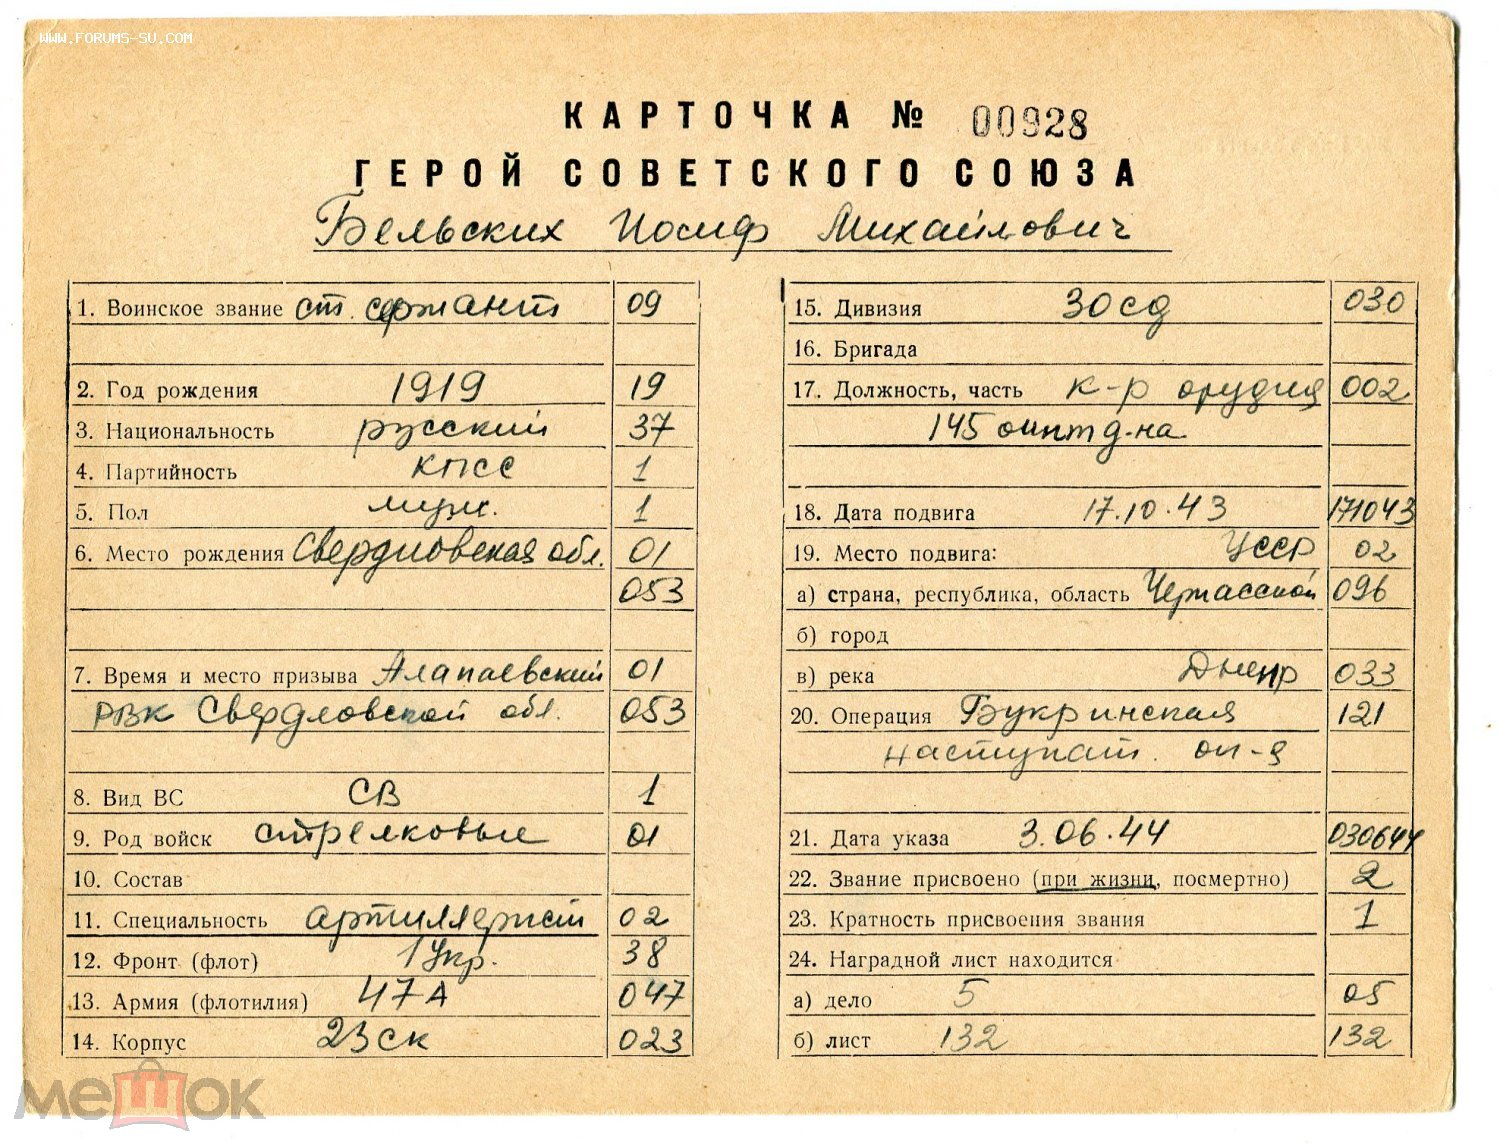 WWW.FORUMS-SU.COM
КАРТОЧКА № 00928
ГЕРОЙ СОВЕТСКОГО СОЮЗА
Бельских Иосиф Михайлович
1. Воинское звание ст. сержант 09
2. Год рождения 1919 19
3. Национальность русский 37
4. Партийность КПСС 1
5. Пол муж. 1
6. Место рождения Свердловская обл. 01
053
7. Время и место призыва Алапаевский 01
РВК Свердловской обл. 053
8. Вид ВС СВ 1
9. Род войск стрелковые 01
10. Состав
11. Специальность артиллерист 02
12. Фронт (флот) 1 Укр. 38
13. Армия (флотилия) 47 А 047
14. Корпус 23 ск 023
15. Дивизия 30 сд 030
16. Бригада
17. Должность, часть к-р орудия 002
145 оиптд-на
18. Дата подвига 17.10.43 171043
19. Место подвига: УССР 02
а) страна, республика, область Черкасской 096
б) город
в) река Днепр 033
20. Операция Букринская 121
наступат. оп-я
21. Дата указа 3.06.44 030644
22. Звание присвоено (при жизни, посмертно) 2
23. Кратность присвоения звания 1
24. Наградной лист находится
а) дело 5 05
б) лист 132 132
мешок